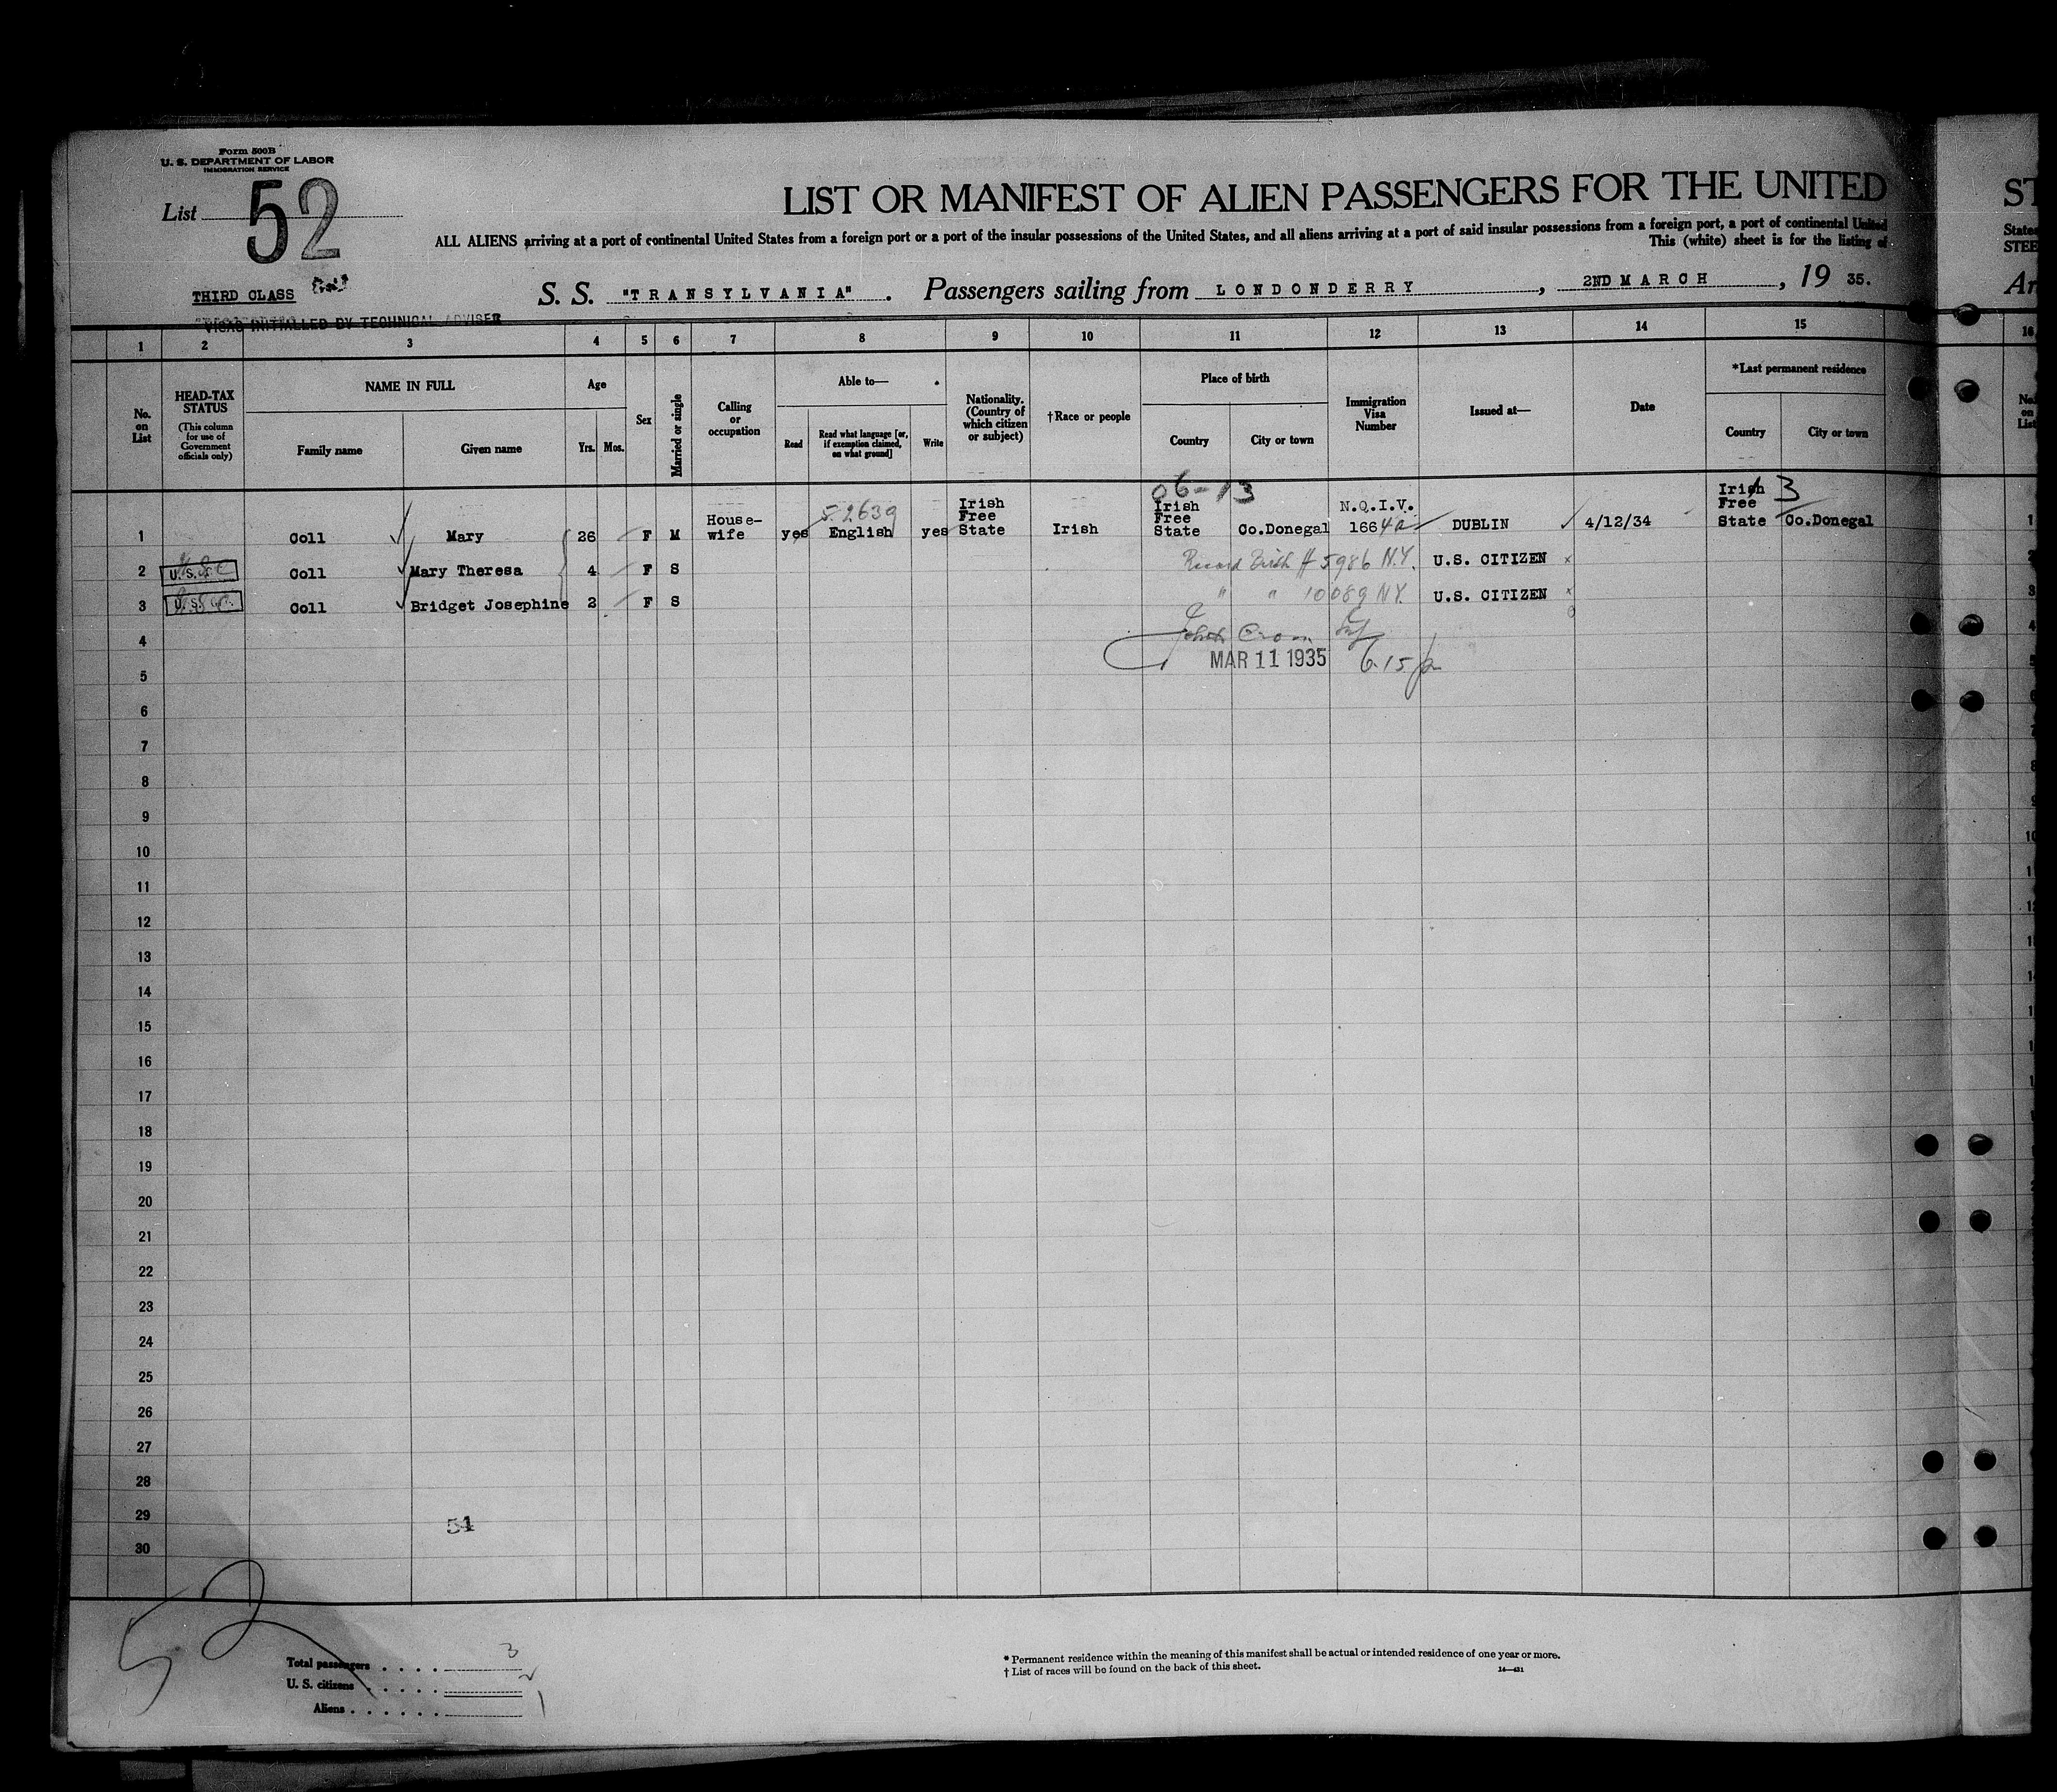 Form 500B
U. S. DEPARTMENT OF LABOR
IMMIGRATION SERVICE
List 52
LIST OR MANIFEST OF ALIEN PASSENGERS FOR THE UNITED
ST
ALL ALIENS arriving at a port of continental United States from a foreign port or a port of the insular possessions of the United States, and all aliens arriving at a port of said insular possessions from a foreign port, a port of continental United
States
This (white) sheet is for the listing of
STEE
THIRD CLASS
S. S. "TRANSYLVANIA". Passengers sailing from LONDONDERRY, 2ND MARCH, 19 35.
Ar
VISAS INITIALLED BY TECHNICAL ADVISER
1 2 3 4 5 6 7 8 9 10 11 12 13 14 15 16
No. on List
HEAD-TAX STATUS
(This column for use of Government officials only)
NAME IN FULL
Family name
Given name
Age
Yrs. Mos.
Sex
Married or single
Calling or occupation
Able to—
Read
Read what language [or, if exemption claimed, on what ground]
Write
Nationality. (Country of which citizen or subject)
†Race or people
Place of birth
Country
City or town
Immigration Visa Number
Issued at—
Date
*Last permanent residence
Country
City or town
No. on List
06-13
3
5-2639
1 Coll Mary 26 F M House-wife yes English yes Irish Free State Irish Irish Free State Co.Donegal N.Q.I.V. 1664 DUBLIN 4/12/34 Irish Free State Co.Donegal 1
2 U.S.C Coll Mary Theresa 4 F S Record Birth # 5986 N.Y. U.S. CITIZEN x
3 U.S.C. Coll Bridget Josephine 2 F S " " 10089 N.Y. U.S. CITIZEN x
4
MAR 11 1935 6.15 p
5
6
7
8
9
10
11
12
13
14
15
16
17
18
19
20
21
22
23
24
25
26
27
28
29
51
30
52
Total passengers . . . . 3
U. S. citizens . . . . . 2
Aliens . . . . . . 1
* Permanent residence within the meaning of this manifest shall be actual or intended residence of one year or more.
† List of races will be found on the back of this sheet.
14—431